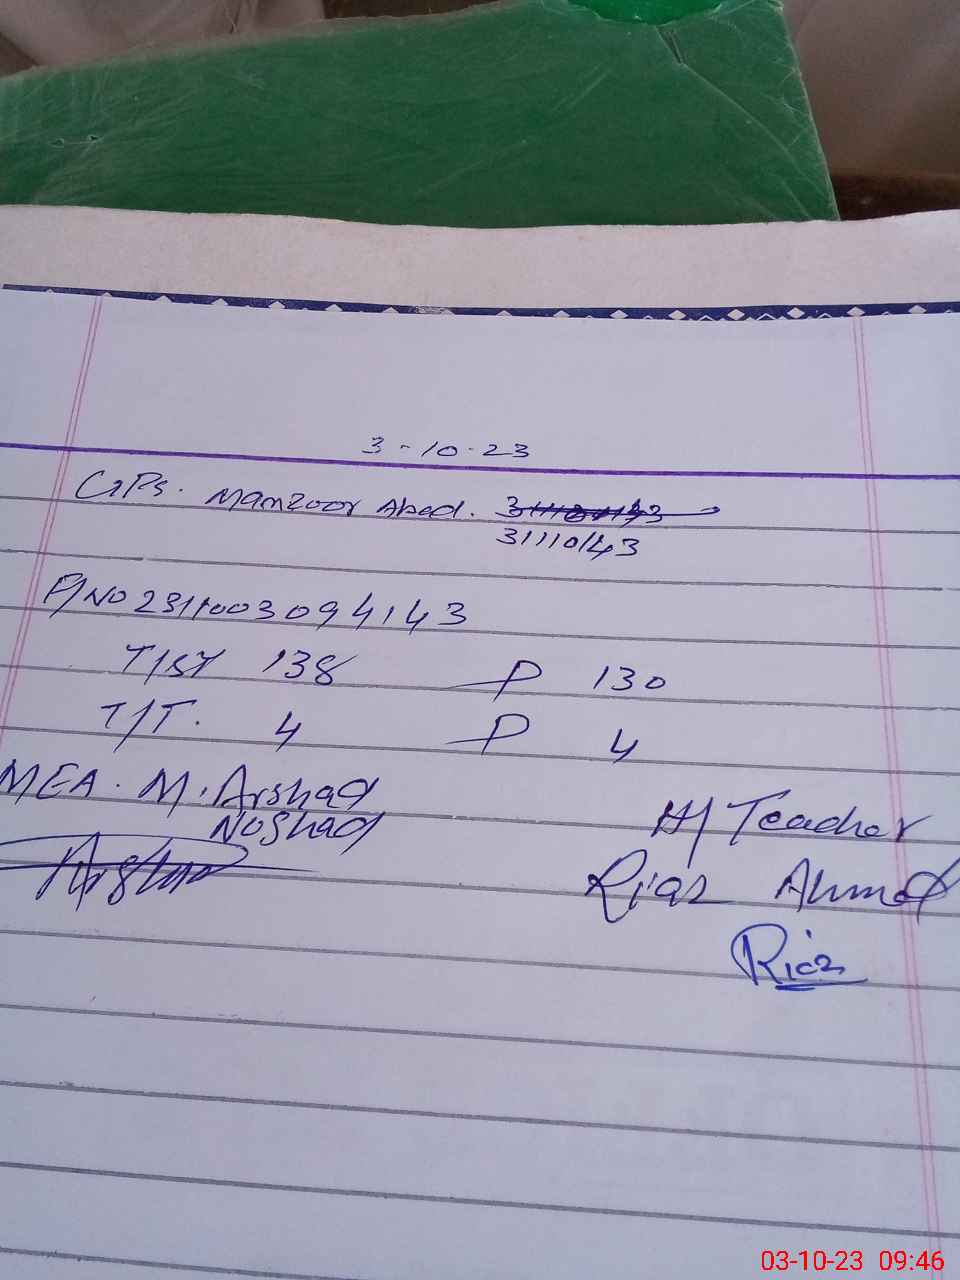 3-10-23
GPS. Manzoor Abad.
31110143
P/NO 2311003094143
T/ST 138 P 130
T/T. 4 P 4
MEA. M. Arshad
Noshad
Arshad
H/Teacher
Riaz Ahmad
Riaz
03-10-23 09:46